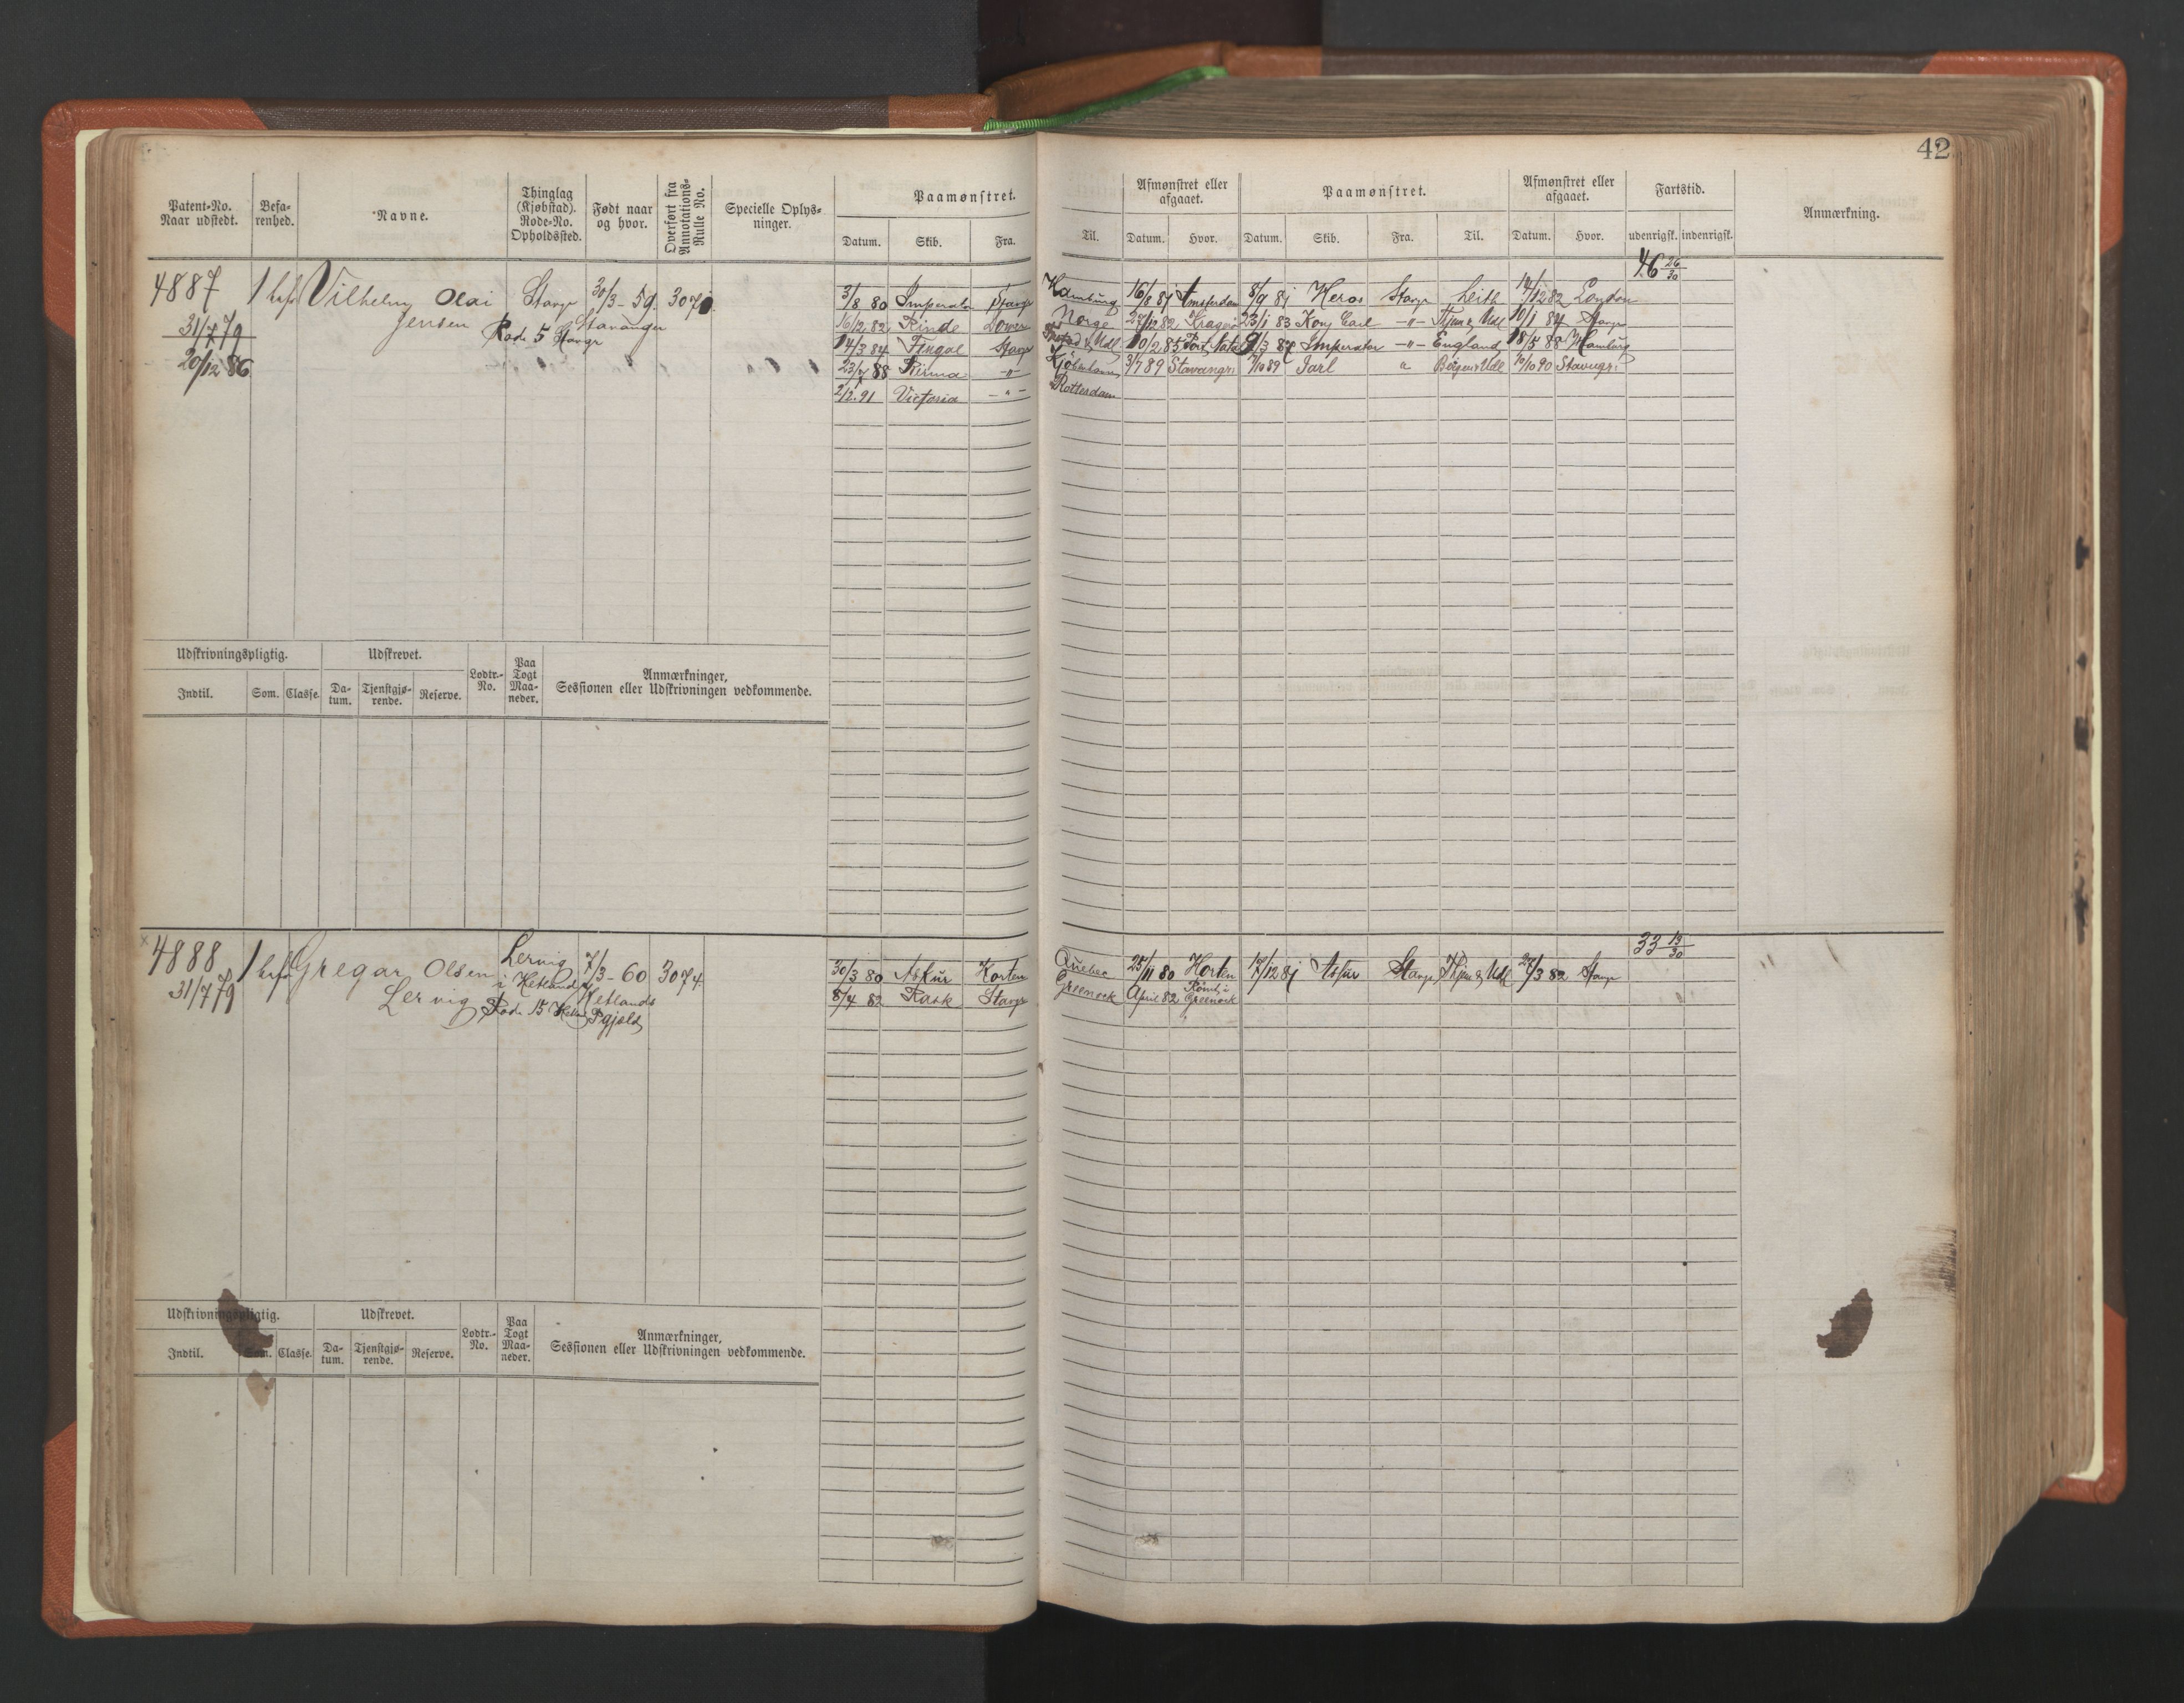 42
Patent-No. Naar udstedt. Befa-renhed. Navne. Thinglag (Kjøbstad). Rode-No. Opholdssted. Født naar og hvor. Overført fra Annotations-Rulle No. Specielle Oplys-ninger. Paamønstret. Afmønstret eller afgaaet. Paamønstret. Afmønstret eller afgaaet. Fartstid. Anmærkning.
Datum. Skib. Fra. Til. Datum. Hvor. Datum. Skib. Fra. Til. Datum. Hvor. udenrigsk. indenrigsk.
46 26/30
4887 1 Vilhelm Olai Stavgr 30/3-59. 3070.
31/7 79 Jensen Rode 5 Stavgr Stavanger
20/12 86
3/8 80 Imperator Stavgr Hamburg 16/8 81 Amsterdam 8/9 81 Heros Stavgr Leith 14/12 82 London
16/12 82 Rinde Dover Norge 27/12 82 Kragerø 23/1 83 Kong Carl -"- Thjem & Udl 10/1 84 Stavgr
14/3 84 Fingal Stavgr & Udl 10/2 85 Port Natal 9/3 87 Imperator -"- England 18/5 88 Hamburg
23/7 88 -"- Kjøbenhavn 3/7 89 Stavangr 7/10 89 Jarl " Bergen & Udl 10/10 90 Stavngr
2/2. 91 Victoria -"- Rotterdam
Udskrivningspligtig. Udskrevet. Lodtr.-No. Paa Togt Maa-neder. Anmærkninger, Sessionen eller Udskrivningen vedkommende.
Indtil. Som. Classe. Da-tum. Tjenstgjø-rende. Reserve.
33 19/30
x 4888 1 Gregar Olsen Lervig i Hetland 7/3-60 3074
31/7 79 Lervig Rode 15 Hetlands Pgjæld
30/3 80 Askur Horten Quebec 25/11 80 Horten 17/12 81 Askur Stavgr Thjem & Udl 27/3 82 Stavgr
8/4 82 Rask Stavgr Greenock April 82 Rømt i Greenock
Udskrivningspligtig. Udskrevet. Lodtr.-No. Paa Togt Maa-neder. Anmærkninger, Sessionen eller Udskrivningen vedkommende.
Indtil. Som. Classe. Da-tum. Tjenstgjø-rende. Reserve.